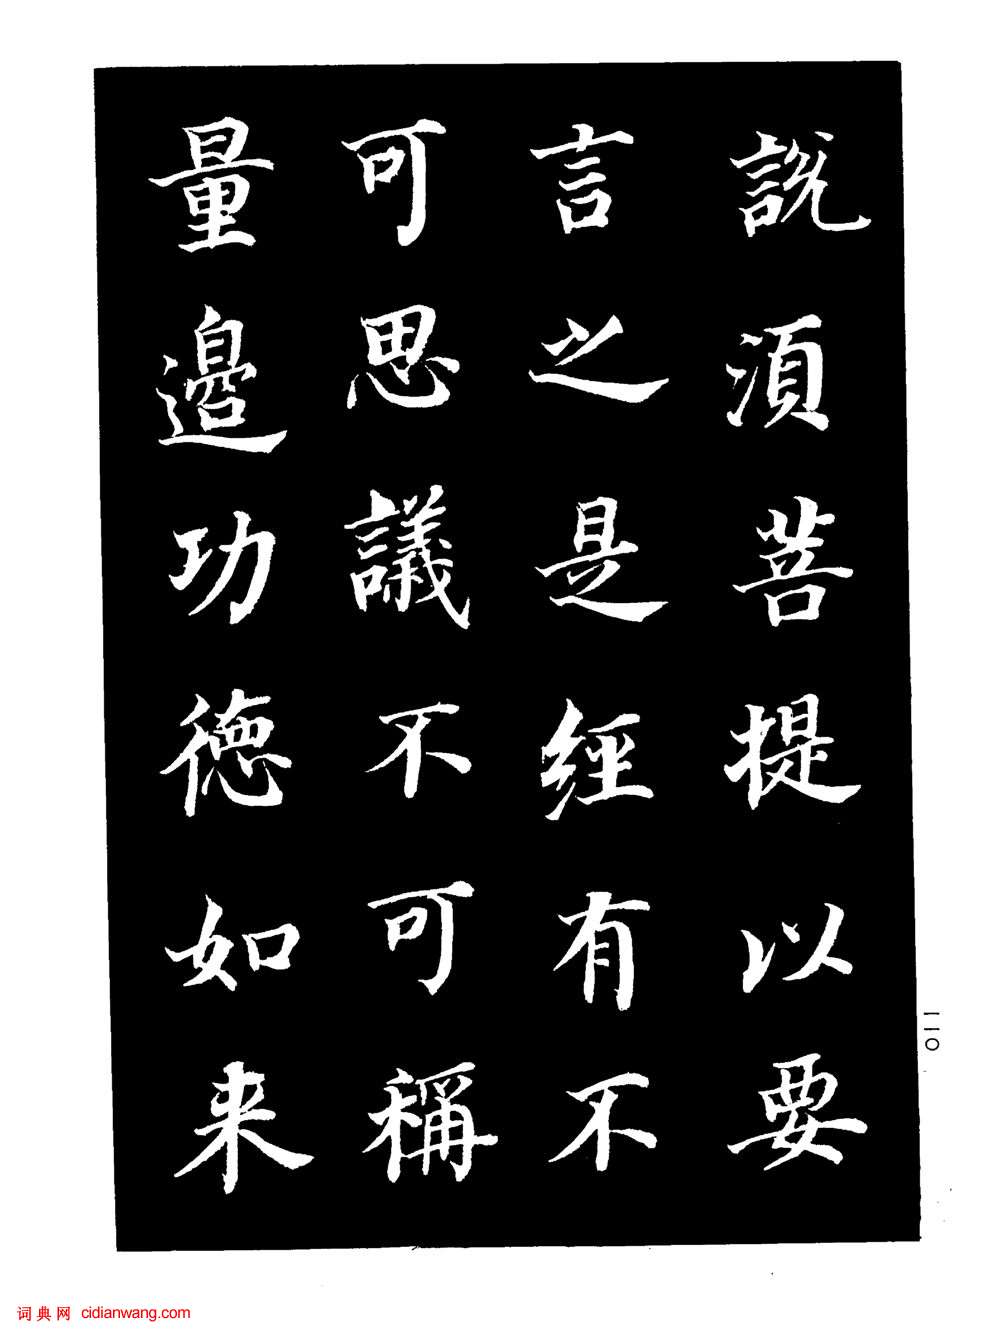 說湏菩提以要
言之是經有不
可思議不可稱
量邊功德如来
一一〇
词典网 cidianwang.com